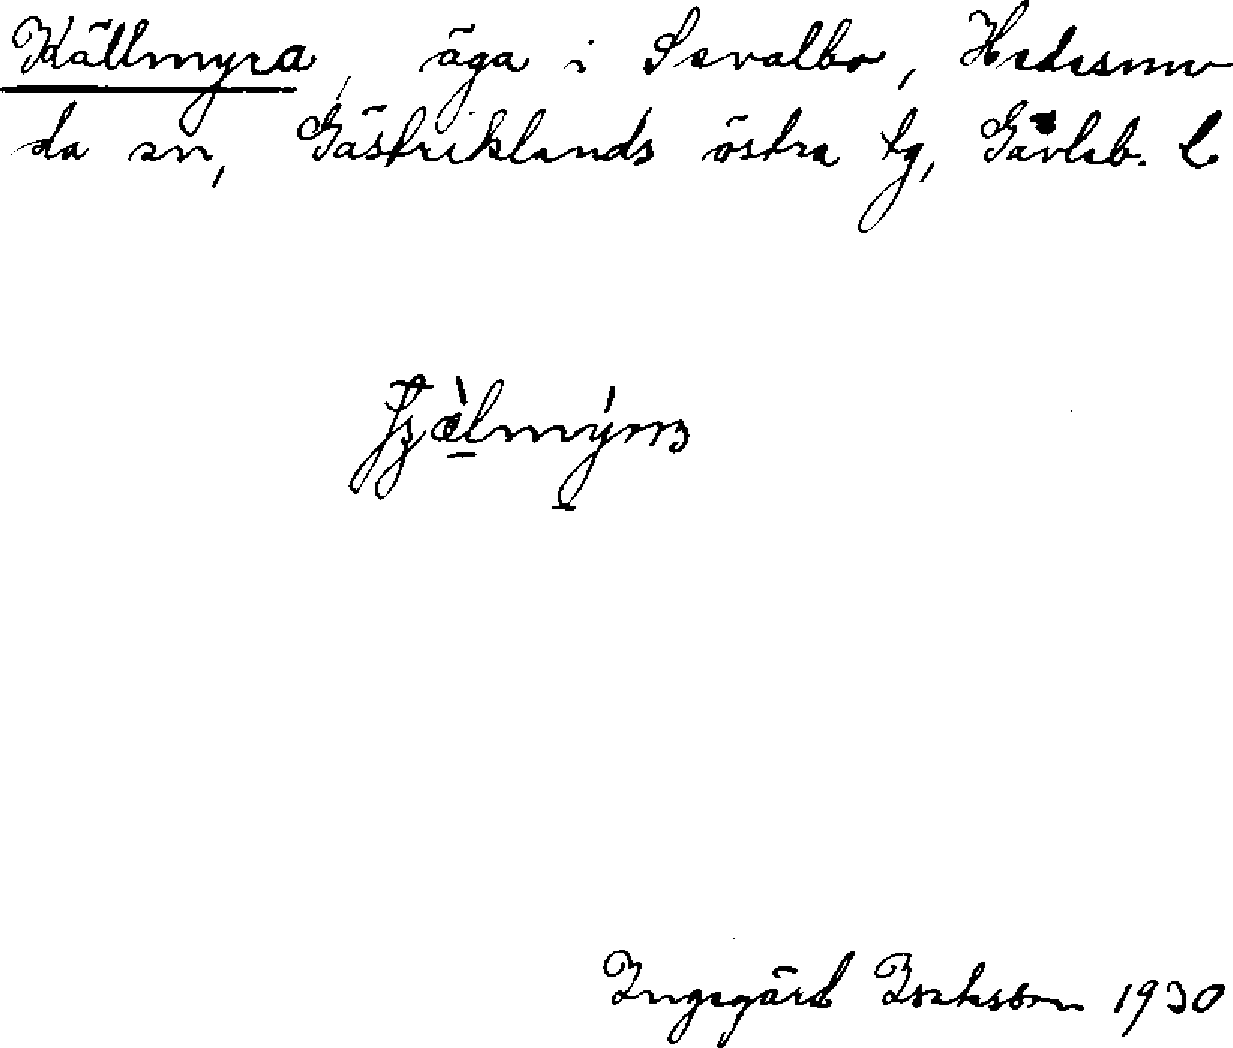 Källmyra, äga i Sevallbo, Hedesun
da sn, Gästriklands östra tg, Gävleb. l
Ingegärd Isaksson 1930